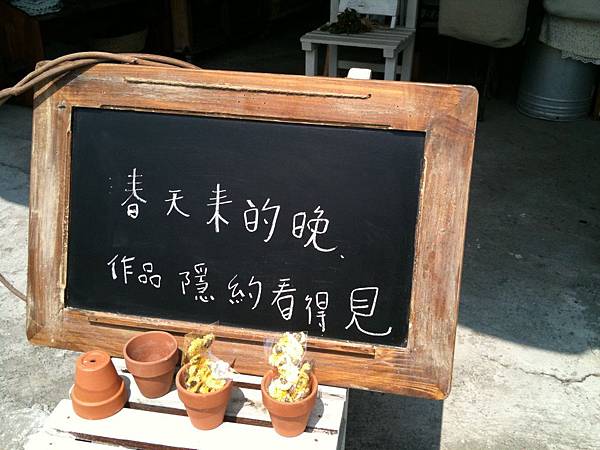 春天来的晚、
作品隱約看得見